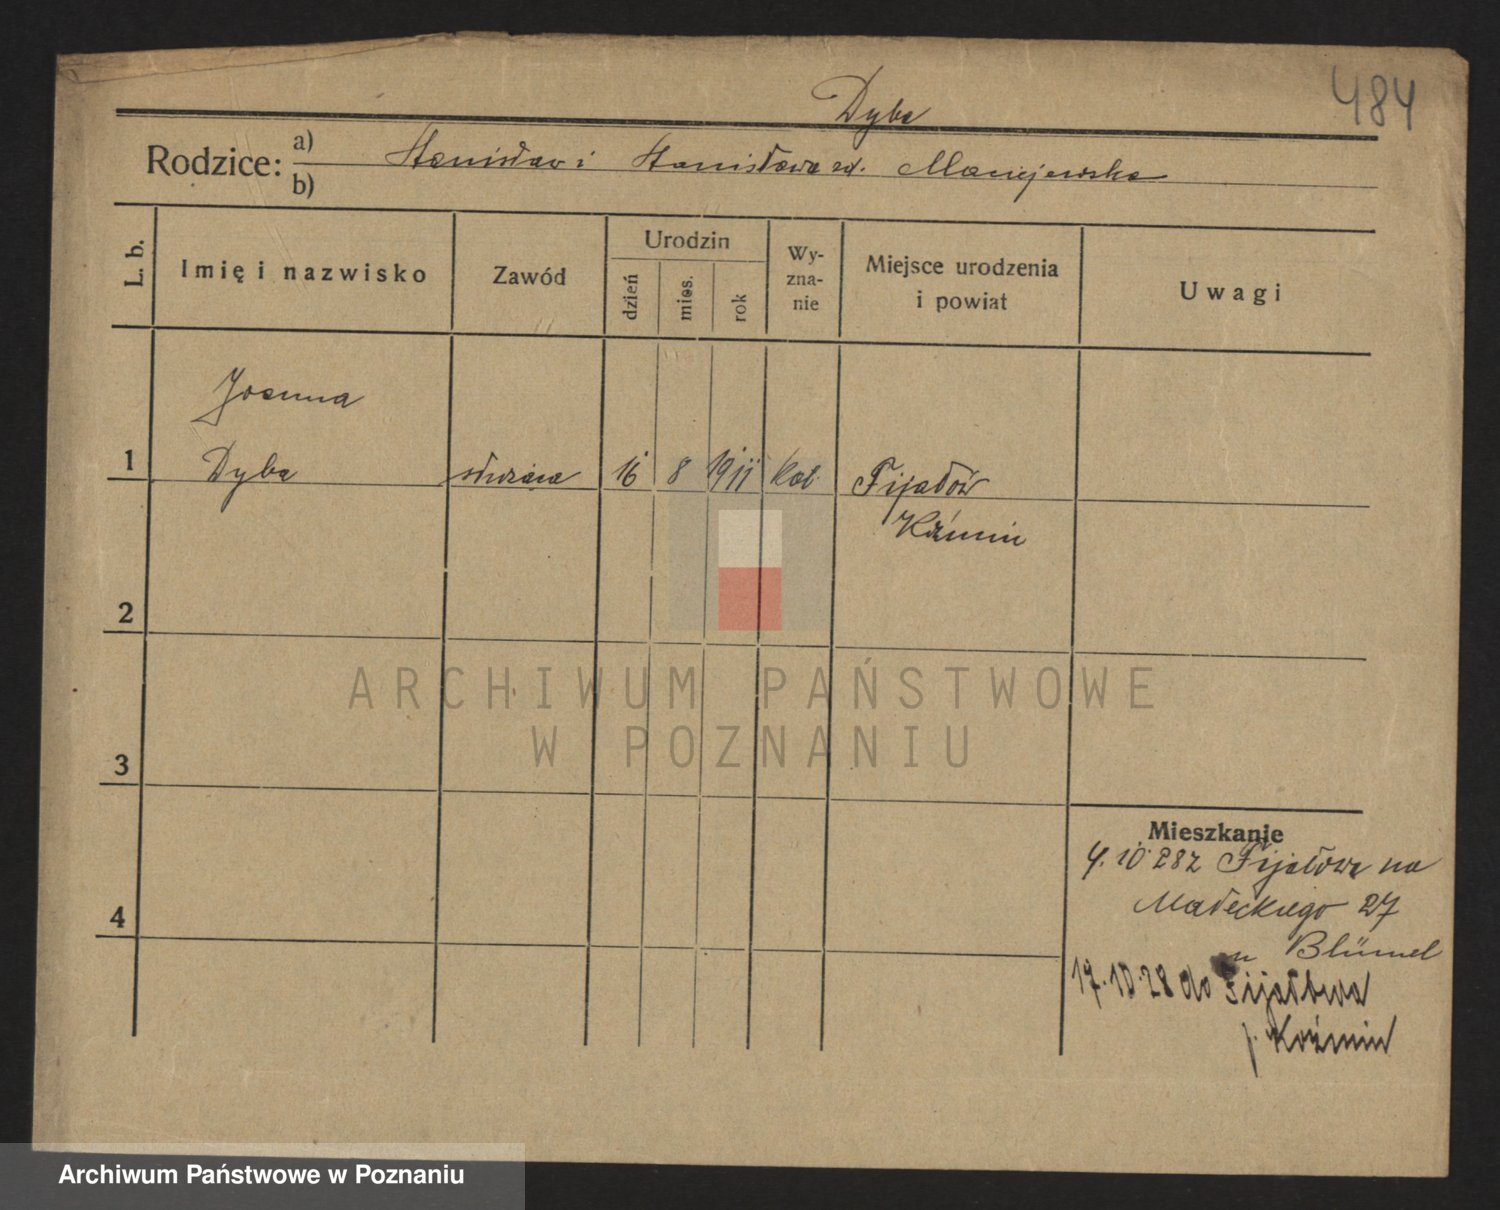 484
Dyba
Rodzice: a) Stanisław i Stanisława zd. Maciejewska
b)
L. b. Imię i nazwisko Zawód Urodzin dzień mies. rok Wyznanie Miejsce urodzenia i powiat Uwagi
Joanna
1 Dyba służąca 16 8 1911 kat. Fijałów
Koźmin
2
3
Mieszkanie
4.10 28 z Fijałowa na
Małeckiego 27
4 u Blümel
17.10.28 do Fijałowa
p. Koźmin
ARCHIWUM PAŃSTWOWE
W POZNANIU
Archiwum Państwowe w Poznaniu